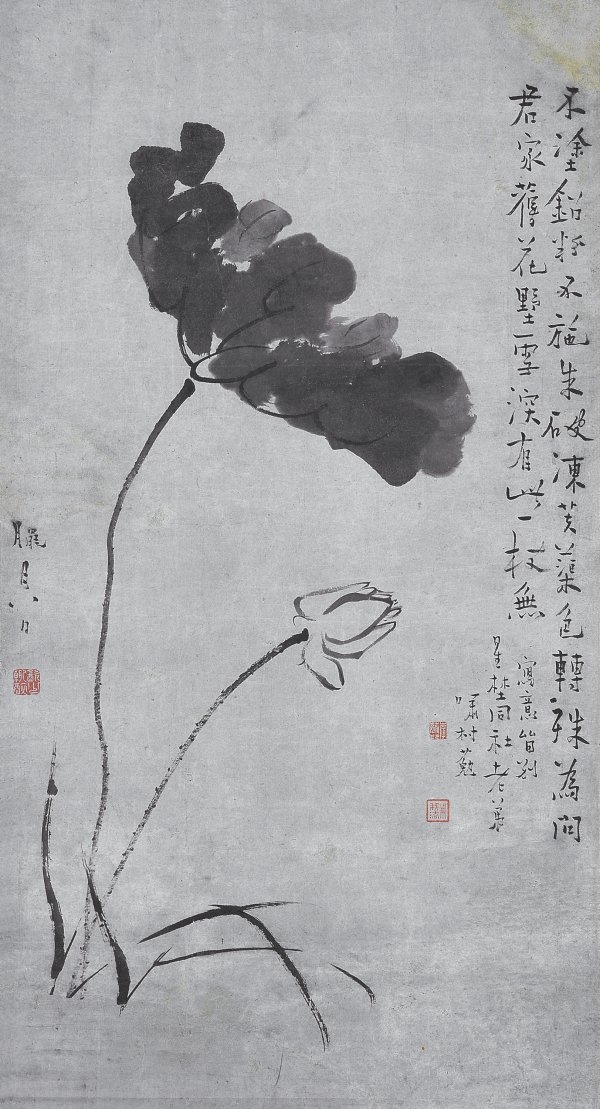 不塗鉛粉不施朱凍芙蕖色轉殊為問
君家舊花墅雪深有此一枝無
寫意留別
同社老弟
嘯村葂
臘月八日